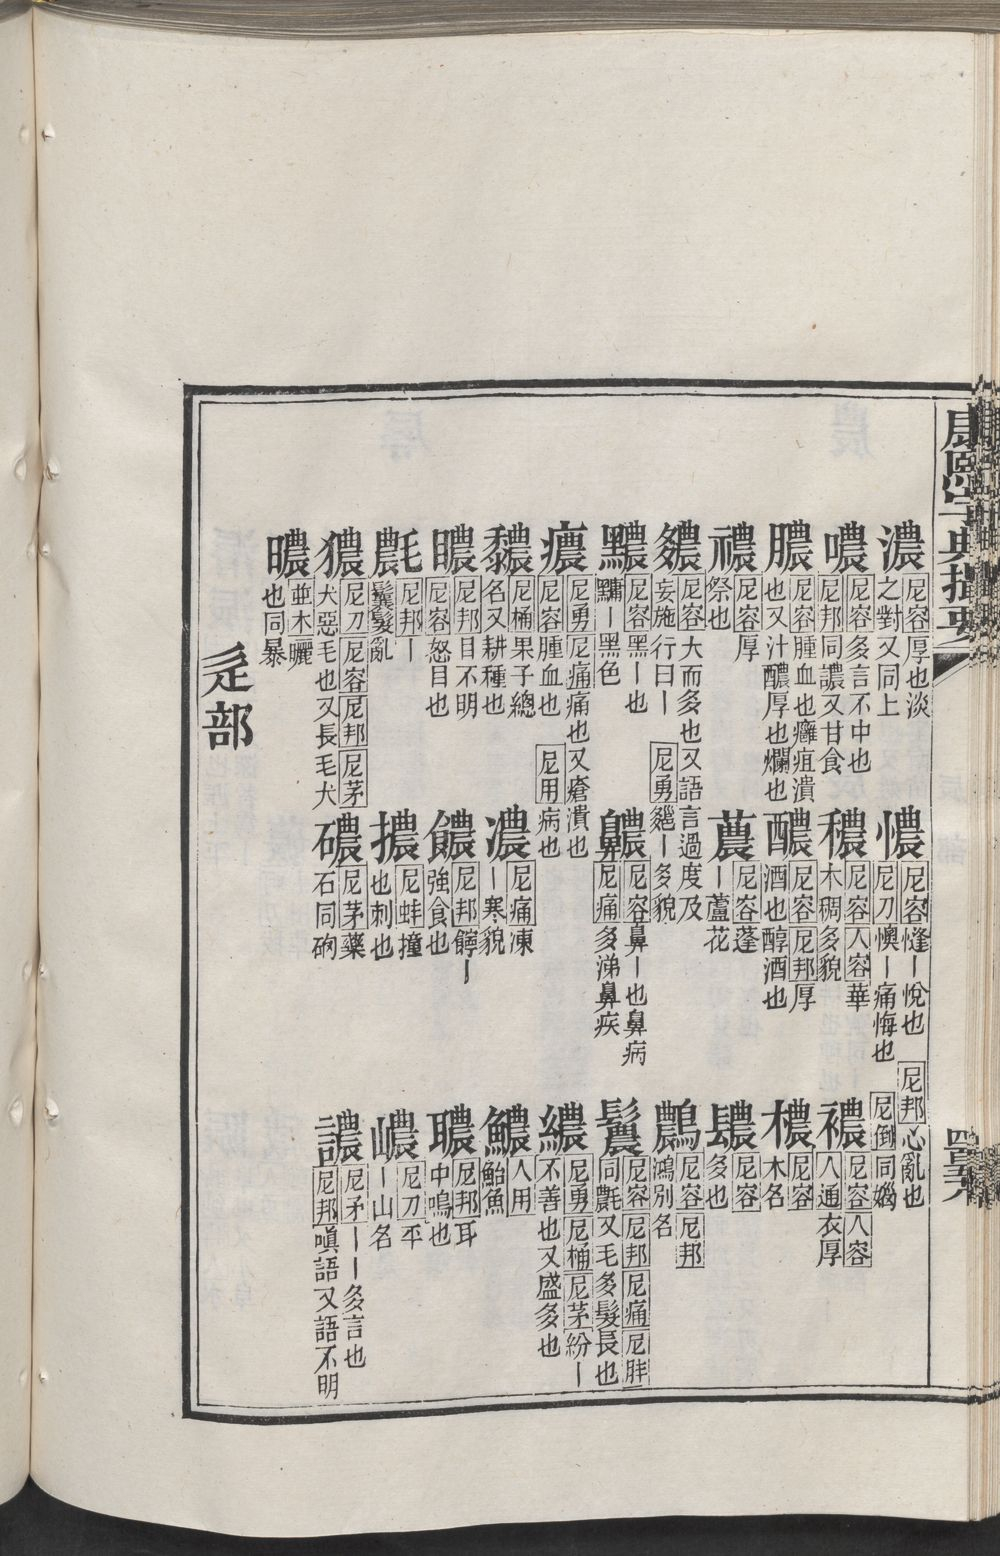 康熙字典撮要
濃 尼容厚也淡之對又同上
憹 尼容㦀丨悅也 尼邦心亂也 尼刀懊丨痛悔也 尼倒同㛴
噥 尼容多言不中也 尼邦同譨又甘食
穠 尼容人容華木稠多貌
襛 尼容人容人通衣厚
膿 尼容腫血也癰疽潰也又汁醲厚也爛也
醲 尼容尼邦厚酒也醇酒也
檂 尼容木名
禯 尼容厚祭也
蕽 尼容蓬丨蘆花
镼 尼容多也
尼容大而多也又語言過度及妄施行曰丨 尼勇丨多貌
鷱 尼容尼邦鴻別名
尼容黑丨也丨黑色
齈 尼容鼻丨也鼻病 尼痛多涕鼻疾
鬞 尼容尼邦尼痛尼胖同氄又毛多髮長也
癑 尼勇尼痛痛也又瘡潰也 尼容腫血也 尼用病也
繷 尼勇尼桶尼茅紛丨不善也又盛多也
尼桶果子總名又耕種也
濃 尼痛凍丨寒貌
鱷 人用鮐魚
尼邦目不明 尼容怒目也
尼邦丨強食也
聹 尼邦耳中鳴也
尼邦丨鬤髮亂
擃 尼蚌撞也刺也
尼刀平丨山名
獳 尼刀尼容尼邦尼茅犬惡毛也又長毛犬
尼茅藥石同硇
譨 尼矛丨丨多言也 尼邦嗔語又語不明
並木曬也同暴
辵部